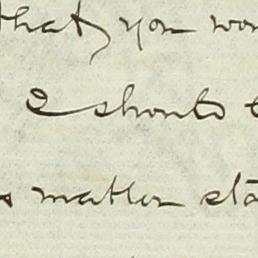 that, you
I should
matter